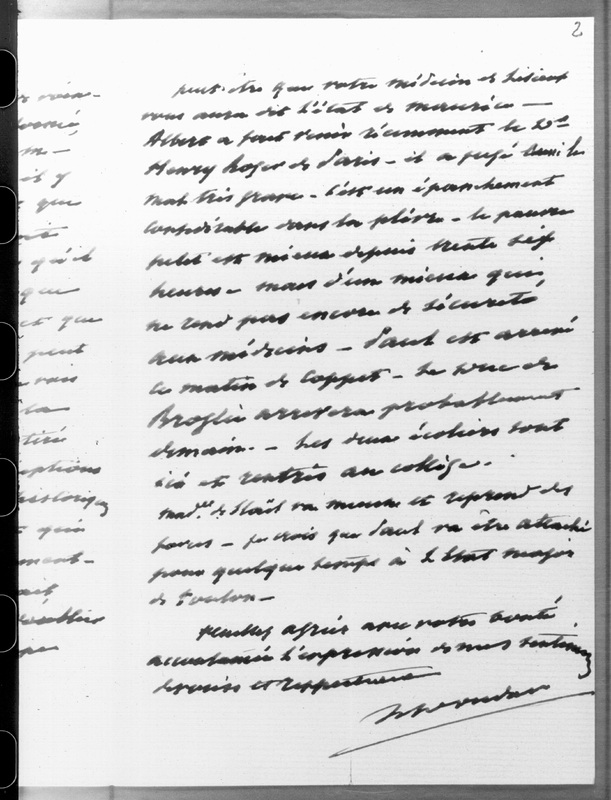 2
peut-être que votre médecin de Lisieux
vous aura dit l'état de Maurice —
Albert a fait venir récemment le Dr
Henry Roger de Paris — il a jugé aussi le
mal très grave — C'est un épanchement
considérable dans la plèvre — le pauvre
petit est mieux depuis trente six
heures — mais d'un mieux qui
ne rend pas encore de sécurité
aux médecins — Paul est arrivé
ce matin de Coppet — Le Duc de
Broglie arrivera probablement
demain. — Les deux écoliers sont
ici et rentrés au collège.
Mad.e de Staël va mieux et reprend des
forces — je crois que Paul va être attaché
pour quelque temps à l'Etat major
de Toulon —
Veuillez agréer avec votre bonté
accoutumée l'expression de mes sentimens
dévoués et respectueux
m —
il y
que
qu'il
que
et que
peut
vais
la
tiré
eptions
historiq
qui
ment —